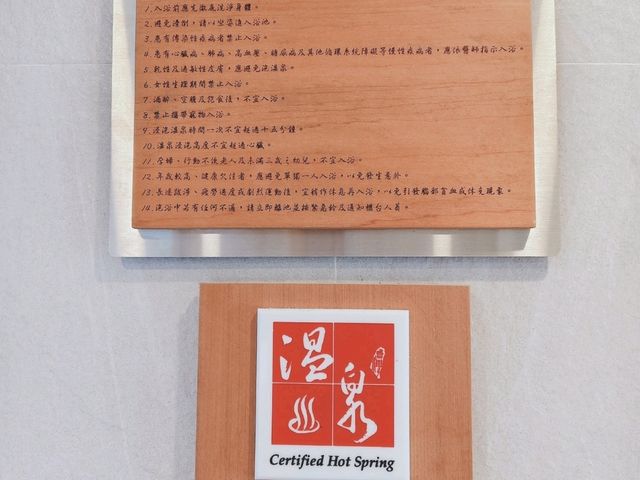 1. 入浴前應先徹底洗淨身體。
2. 避免燙傷，請以坐姿進入浴池。
3. 患有傳染性疾病者禁止入浴。
4. 患有心臟病、肺病、高血壓、糖尿病及其他循環系統障礙等慢性疾病者，應依醫師指示入浴。
5. 乾性及過敏性皮膚，應避免泡溫泉。
6. 女性生理期間禁止入浴。
7. 酒醉、空腹及飽食後，不宜入浴。
8. 禁止攜帶寵物入浴。
9. 浸泡溫泉時間一次不宜超過十五分鐘。
10. 溫泉浸泡高度不宜超過心臟。
11. 孕婦、行動不便老人及未滿三歲之幼兒，不宜入浴。
12. 年歲較高、健康欠佳者，應避免單獨一人入浴，以免發生意外。
13. 長途跋涉、疲勞過度或劇烈運動後，宜稍作休息再入浴，以免引發腦部貧血或休克現象。
14. 泡浴中若有任何不適，請立即離池並按緊急鈴及通知櫃台人員。
溫泉
Certified Hot Spring